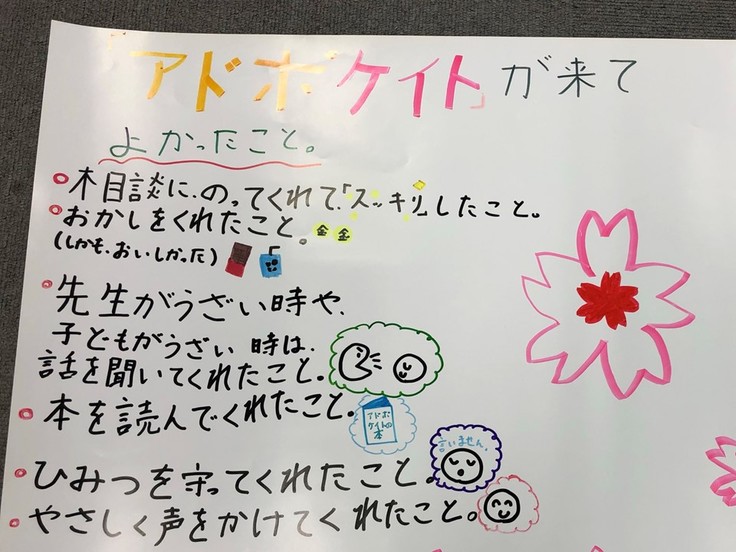 「アドボケイト」が来て
よかったこと。
相談に.のってくれて.「スッキリ」したこと。
おかしをくれたこと。金金
(しかも.おいしかった)
先生がうざい時や、
子どもがうざい時は、
話を聞いてくれたこと。
本を読んでくれたこと。
アドボ
ケイトの
本
ひみつを守ってくれたこと。
言いません。
やさしく声をかけてくれたこと。